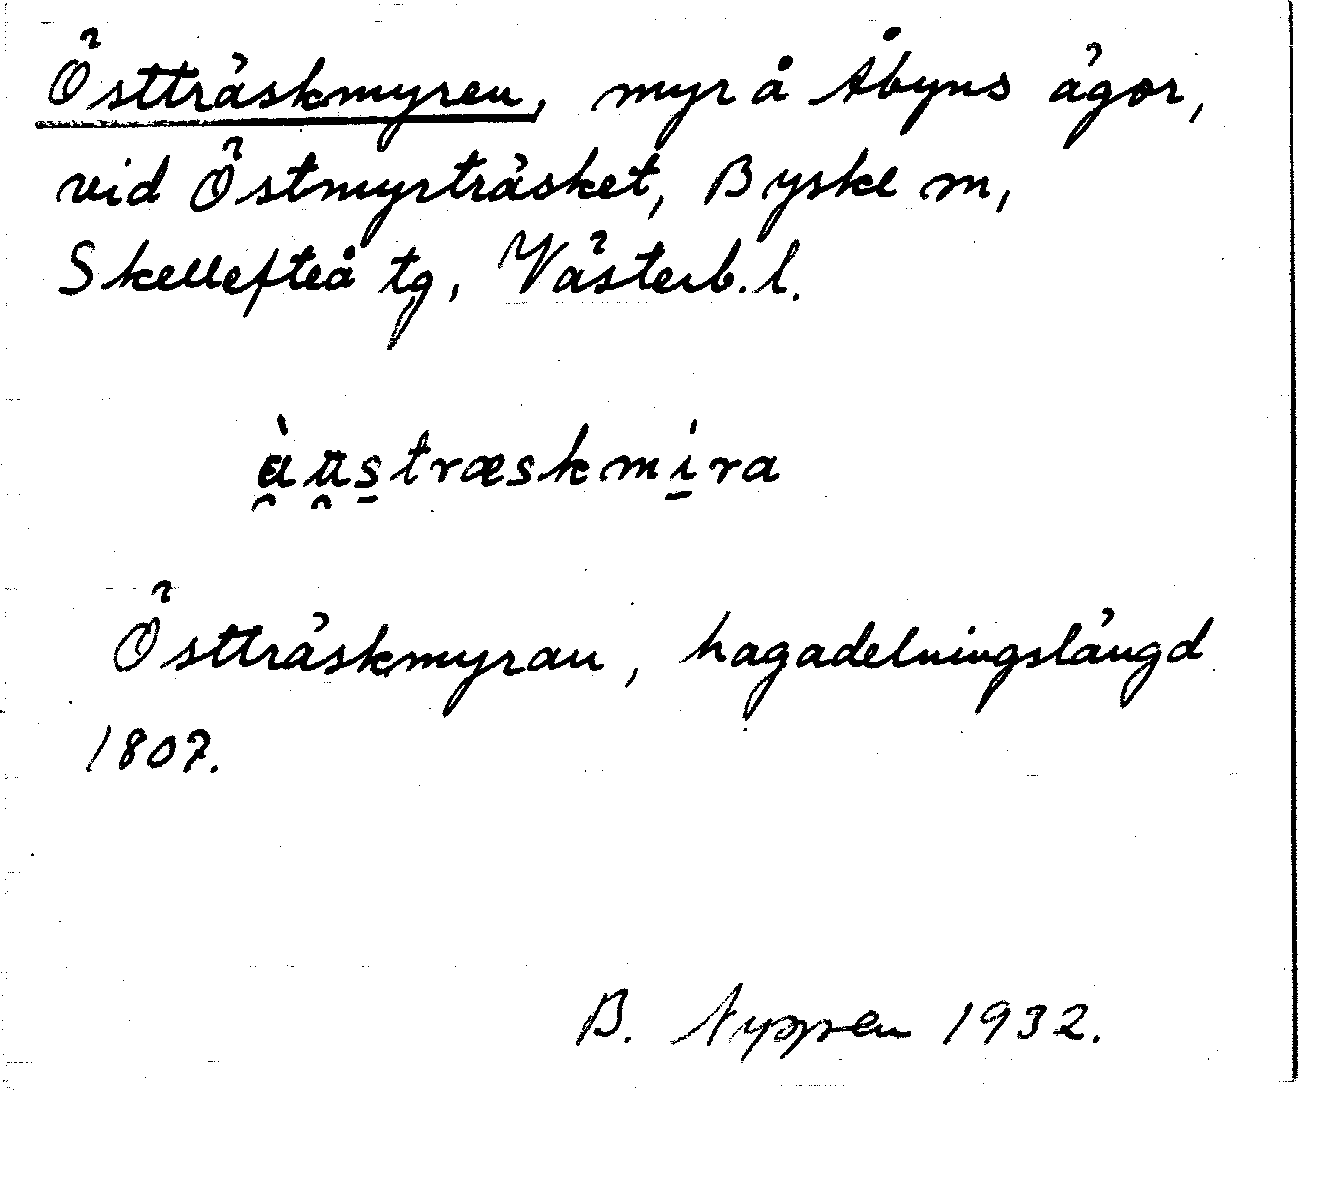 Östträskmyren, myr å Åbyns ägor,
vid Östmyrträsket, Byske sn,
Skellefteå tg, Västerb. l.
à̯u̯s̠træskmi̠ra
Östträskmyran, hagadelningslängd
1807.
B. 1932.